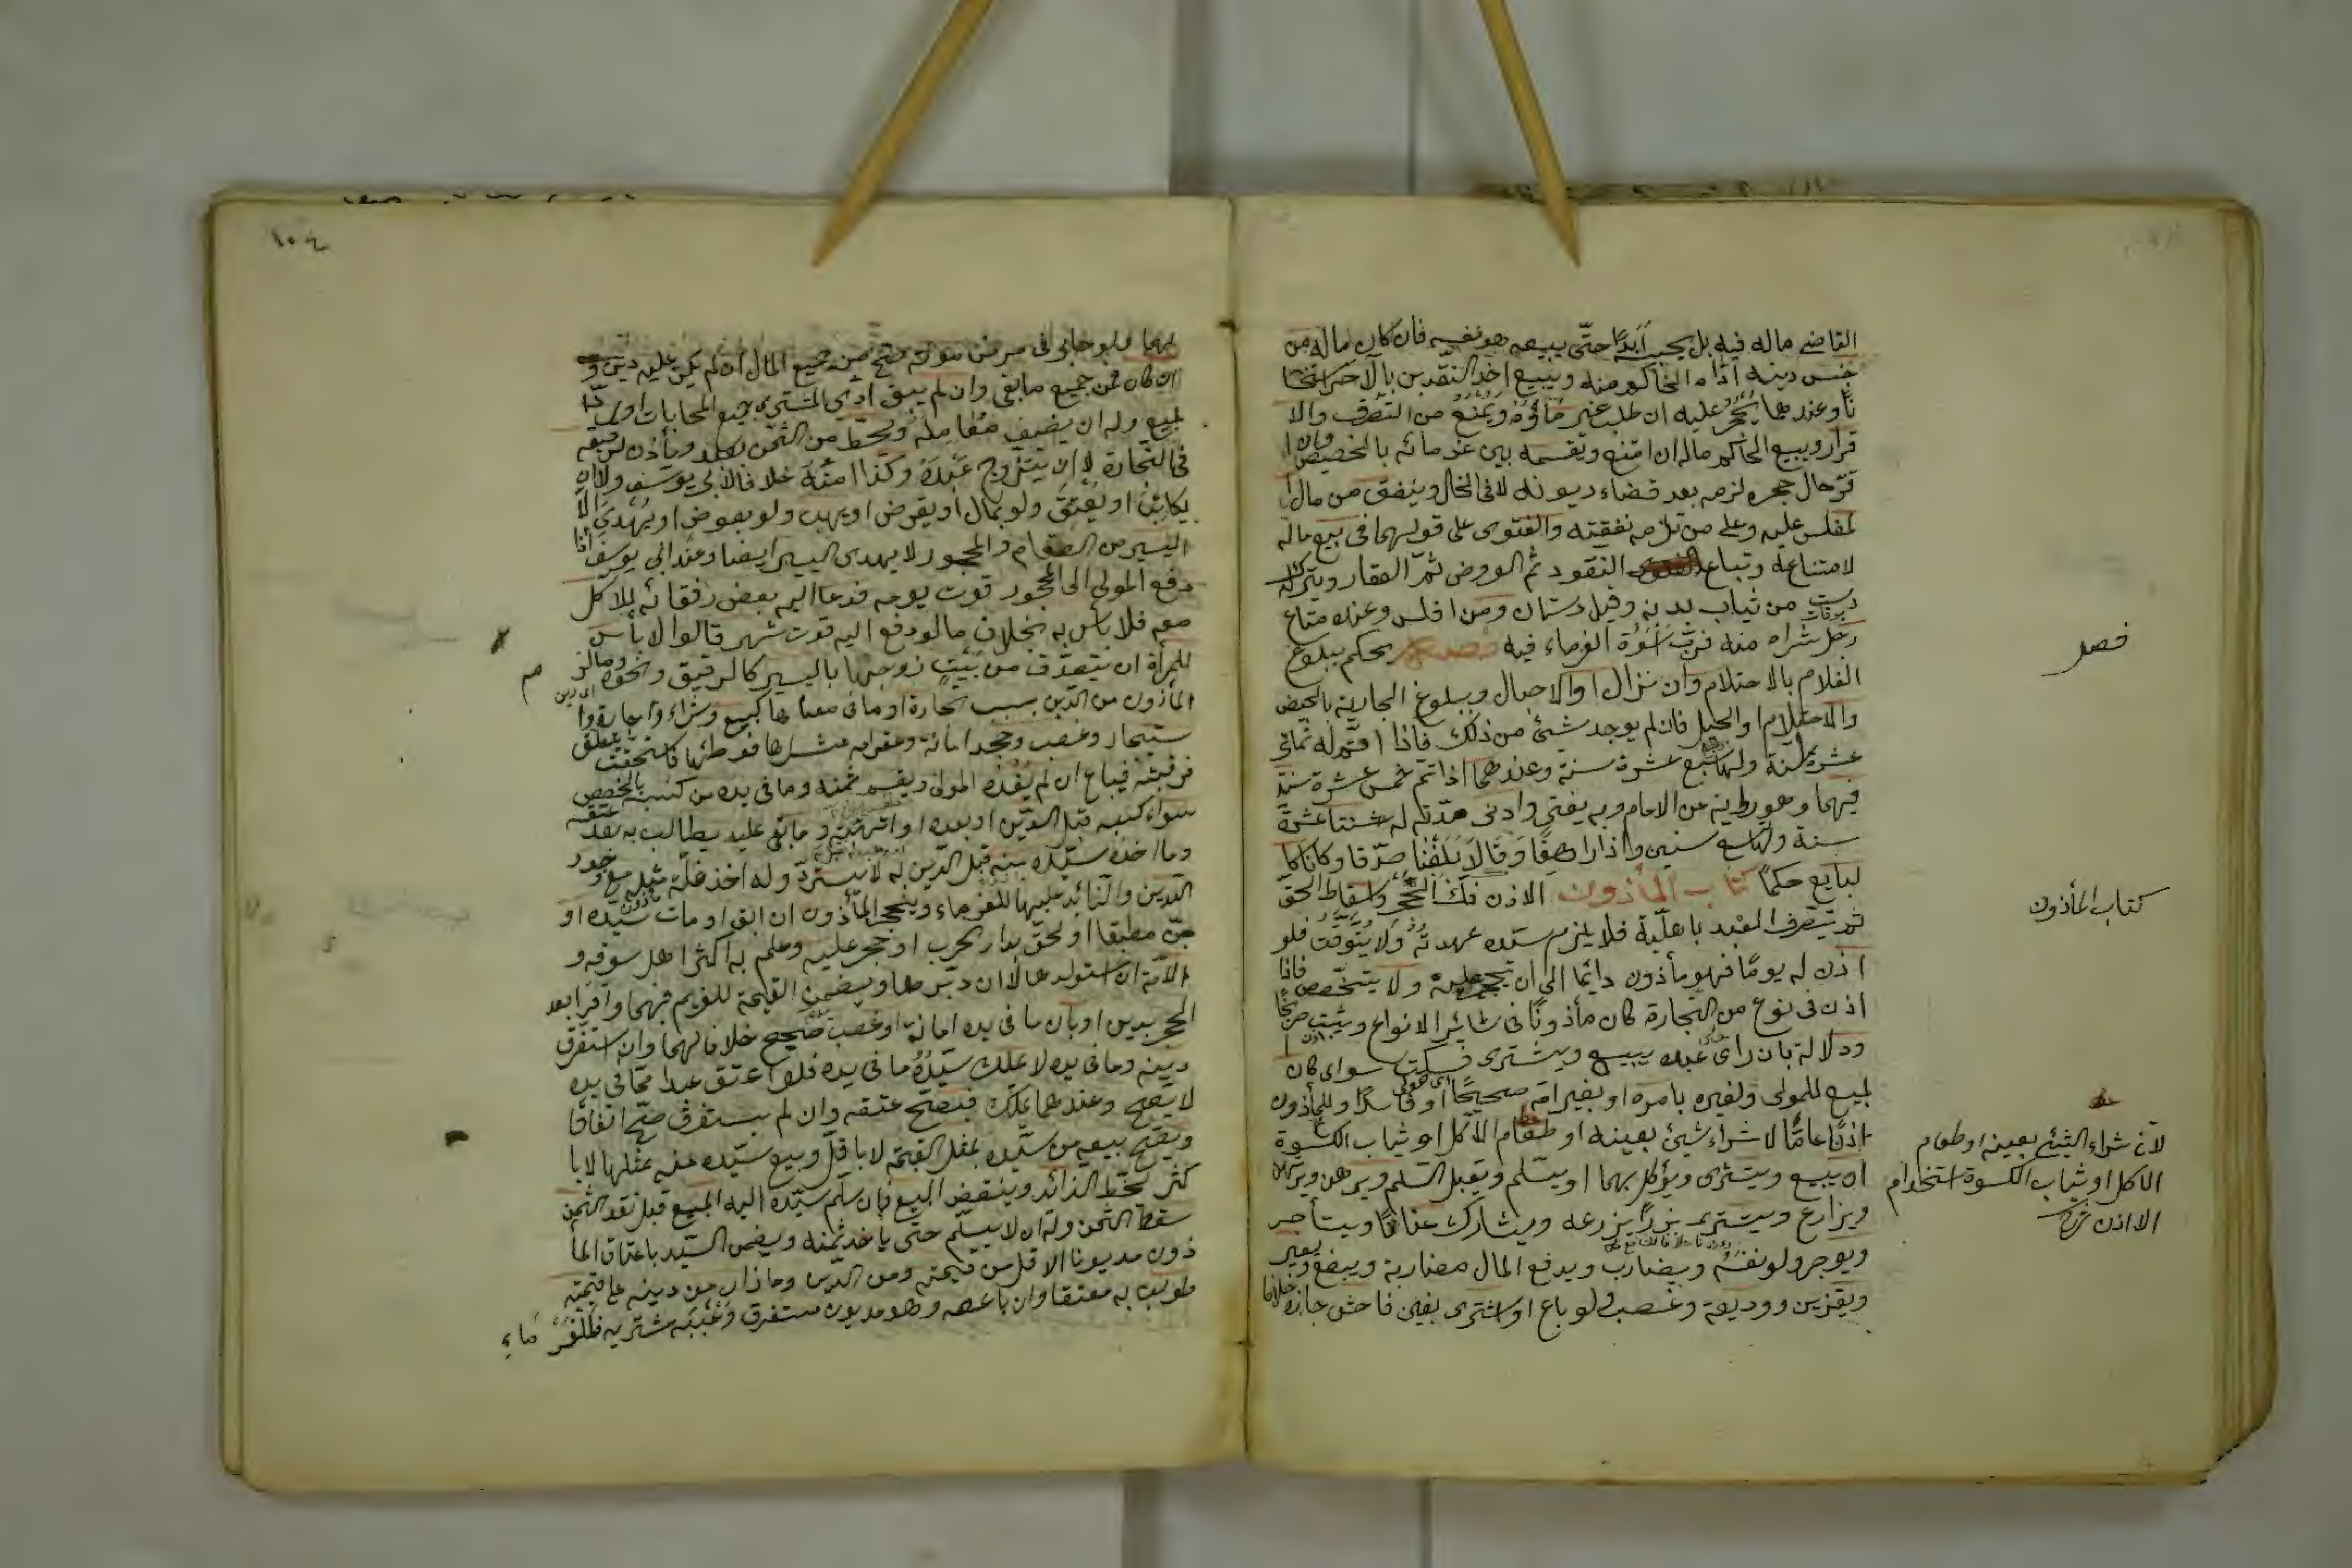 القاضي ماله فيه بل يحبسه أبدًا حتّى يبيعه هو نفسه فان كان ماله من
جنس دينه اداه الحاكم منه ويبيع احد النقدين بالآخر استحسا
نًا وعندهما يحجر عليه ان طلب غرماؤه ويمنع من التصرف والا
قرار ويبيع الحاكم ماله ان امتنع ويقسمه بين غرمائه بالحصص وان ا
قرّ حال حجره لزمه بعد قضاء ديونه لا في الحال وينفق من مال ا
لمفلس عليه وعلى من تلزمه نفقته والفتوى على قولهما في بيع ماله
لامتناعه وتباع النقود ثم العروض ثمّ العقار ويترك له
دست من ثياب بدنه وقيل دستان ومن افلس وعنده متاع
رجل شراه منه فربّه أسوة الغرماء فيه فصل يحكم ببلوغ
الغلام بالاحتلام والانزال او الاحبال وببلوغ الجارية بالحيض
والاحتلام او الحبل فان لم يوجد شيئ من ذلك فاذا اتمّ له ثماني
عشرة سنة ولها سبع عشرة سنة وعندهما اذا تمّ خمس عشرة سنة
فيهما وهو رواية عن الامام وبه يفتى وادنى مدّته له ثنتا عشرة
سنة ولها تسع سنين واذا راهقا وقالا بلغنا صدّقا وكانا كا
لبالغ حكمًا كتاب المأذون الاذن فكّ الحجر واسقاط الحق
ثم يتصرف العبد باهليّة فلا يلزم سيّده عهدته ولا يتوقت فلو
اذن له يومًا فهو مأذون دائما الى ان يحجر عليه ولا يتخصّص فاذا
اذن في نوع من التجارة كان مأذونًا في سائر الانواع ويثبت صريحًا
ودلالة بان رأى عبده يبيع ويشترى فسكت سواى كان ا
لبيع للمولى ولغيره بامره او بغير امره صحيحًا او فاسدًا وللمأذون
اذنًا عامًّا لا شراء شيئ بعينه او طعام الاكل او ثياب الكسوة
ان يبيع ويشترى ويوكل بهما ويسلّم ويقبل السلم ويرهن ويرتهن
ويزارع ويشترى بزرًا يزرعه ويشارك عنانًا ويستأجر
ويوجر ولو نفسه ويضارب ويدفع المال مضاربة ويبضع ويعير
ويقرّ بدين ووديعة وغصب ولو باع او اشترى بغبن فاحش جاز خلافا
فصل
كتاب المأذون
لانّ شراء الشئ بعينه او طعام
الاكل او ثياب الكسوة استخدام
لا اذن
١٠٤
لهما ولو حابى في مرض موته صحّ من جميع المال ان لم يكن عليه دين و
ان كان فمن جميع ما بقى وان لم يبق ادّى المشترى جميع المحابات او ردّ ا
لمبيع وله ان يضيف معامله ويحطّ من الثمن بعيب ويأذن لرقيقه
في التجارة لا ان يتزوج عبده وكذا امته خلافا لابي يوسف ولا ان
يكاتب او يعتق ولو بمال او يقرض او يهب ولو بعوض او يهدى الّا
اليسير من الطعام والمحجور لا يهدى اليسير ايضا وعند ابى يوسف اذا
دفع المولى الى المحجور قوت يومه فدعا اليه بعض رفقائه للاكل
معه فلا بأس به بخلاف ما لو دفع اليه قوت شهر قالوا لا بأس
للمرأة ان تتصدّق من بيت زوجها باليسير كالرقيق ونحوه وما لز
م المأذون من الدّين بسبب تجارة او ما في معناها كبيع وشراء واجارة وا
ستيجار وغصب وجحد امانة وعقر امة شراها فوطئها فاستحقّت يتعلق
برقبته فيباع ان لم يفده المولى ويقسم ثمنه وما في يده من كسبه بالحصص
سواء كسبه قبل الدّين او بعده او اتّهبه وما بقى عليه يطالب به بعد عتقه
وما اخذه سيّده منه قبل الدّين له لا يستردّ وله اخذ غلّة مثله مع وجود
الدّين والزّائد عليها للغرماء وينحجر المأذون ان ابق او مات سيّده او
جنّ مطبقا او لحق بدار الحرب او حجر عليه وعلم به اكثر اهل سوقه و
الامة ان استولدها لا ان دبّرها ويضمن القيمة للغريم فيهما واقرّ بعد
الحجر بدين او بان ما في يده امانة او غصب صحيح خلافا لهما وان استغرق
دينه وما في يده لا يملك سيّده ما في يده فلو اعتق عبدا ممّا في يده
لا يصحّ وعندهما يملك فيصحّ عتقه وان لم يستغرق صحّ اتفاقا
ويصحّ بيعه من سيّده بمثل القيمة لا باقلّ وبيع سيّده منه بمثلها لا با
كثر يحطّ الزائد وينقض البيع فان سلّم سيّده اليه المبيع قبل نقد الثمن
سقط الثمن وله ان لا يسلّم حتى ياخذ ثمنه ويضمن السيّد باعتاق المأ
ذون مديونا الاقل من قيمته ومن الدين وما زاد من دينه على قيمته
طولب به معتقا وان باعه وهو مديون مستغرق وغيّبه مشتريه فللغرماء